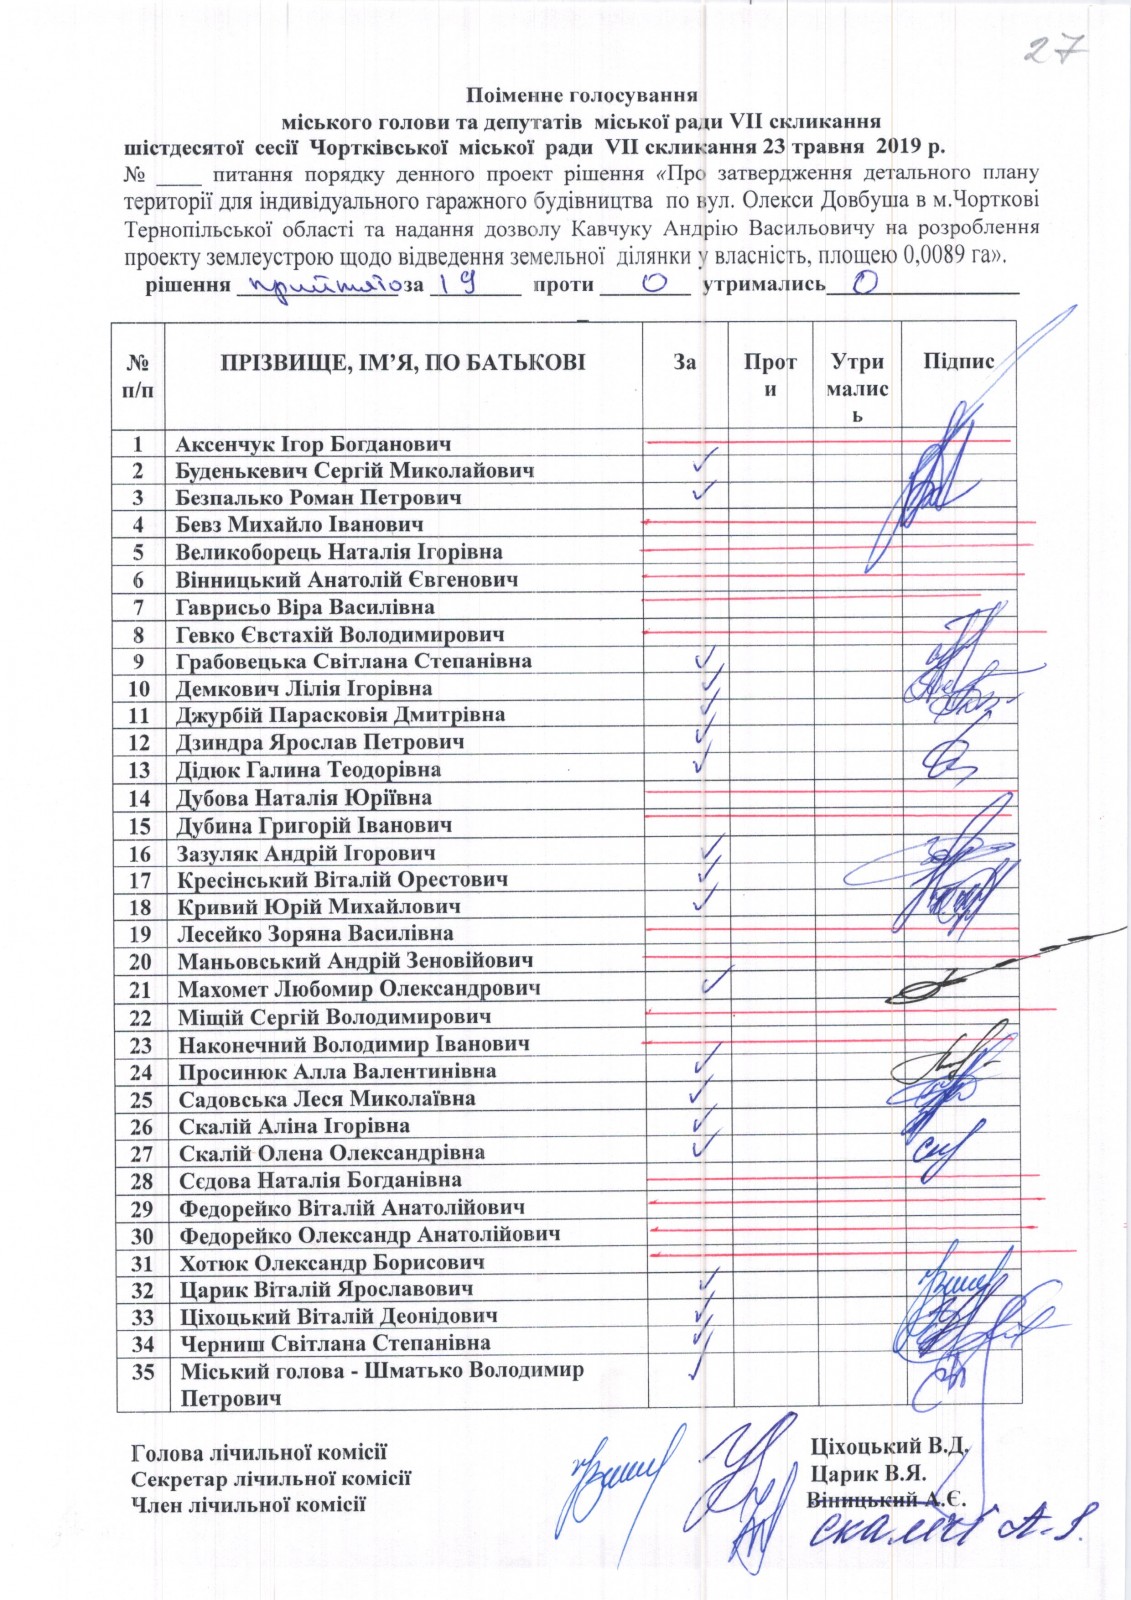 27
Поіменне голосування
міського голови та депутатів міської ради VII скликання
шістдесятої сесії Чортківської міської ради VII скликання 23 травня 2019 р.
№ ____ питання порядку денного проект рішення «Про затвердження детального плану
території для індивідуального гаражного будівництва по вул. Олекси Довбуша в м.Чорткові
Тернопільської області та надання дозволу Кавчуку Андрію Васильовичу на розроблення
проекту землеустрою щодо відведення земельної ділянки у власність, площею 0,0089 га».
рішення прийнято за 19 проти 0 утримались 0
№ п/п ПРІЗВИЩЕ, ІМ’Я, ПО БАТЬКОВІ За Проти Утрималось Підпис
1 Аксенчук Ігор Богданович
2 Буденькевич Сергій Миколайович ✓
3 Безпалько Роман Петрович ✓
4 Бевз Михайло Іванович
5 Великоборець Наталія Ігорівна
6 Вінницький Анатолій Євгенович
7 Гаврисьо Віра Василівна
8 Гевко Євстахій Володимирович
9 Грабовецька Світлана Степанівна ✓
10 Демкович Лілія Ігорівна ✓
11 Джурбій Парасковія Дмитрівна ✓
12 Дзиндра Ярослав Петрович ✓
13 Дідюк Галина Теодорівна ✓
14 Дубова Наталія Юріївна
15 Дубина Григорій Іванович
16 Зазуляк Андрій Ігорович ✓
17 Кресінський Віталій Орестович ✓
18 Кривий Юрій Михайлович ✓
19 Лесейко Зоряна Василівна
20 Маньовський Андрій Зеновійович
21 Махомет Любомир Олександрович ✓
22 Міщій Сергій Володимирович
23 Наконечний Володимир Іванович
24 Просинюк Алла Валентинівна ✓
25 Садовська Леся Миколаївна ✓
26 Скалій Аліна Ігорівна ✓
27 Скалій Олена Олександрівна ✓
28 Сєдова Наталія Богданівна
29 Федорейко Віталій Анатолійович
30 Федорейко Олександр Анатолійович
31 Хотюк Олександр Борисович
32 Царик Віталій Ярославович ✓
33 Ціхоцький Віталій Деонідович ✓
34 Черниш Світлана Степанівна ✓
35 Міський голова - Шматько Володимир ✓
Петрович
Голова лічильної комісії Ціхоцький В.Д.
Секретар лічильної комісії Царик В.Я.
Член лічильної комісії Вінницький А.Є.
Скалій А.І.